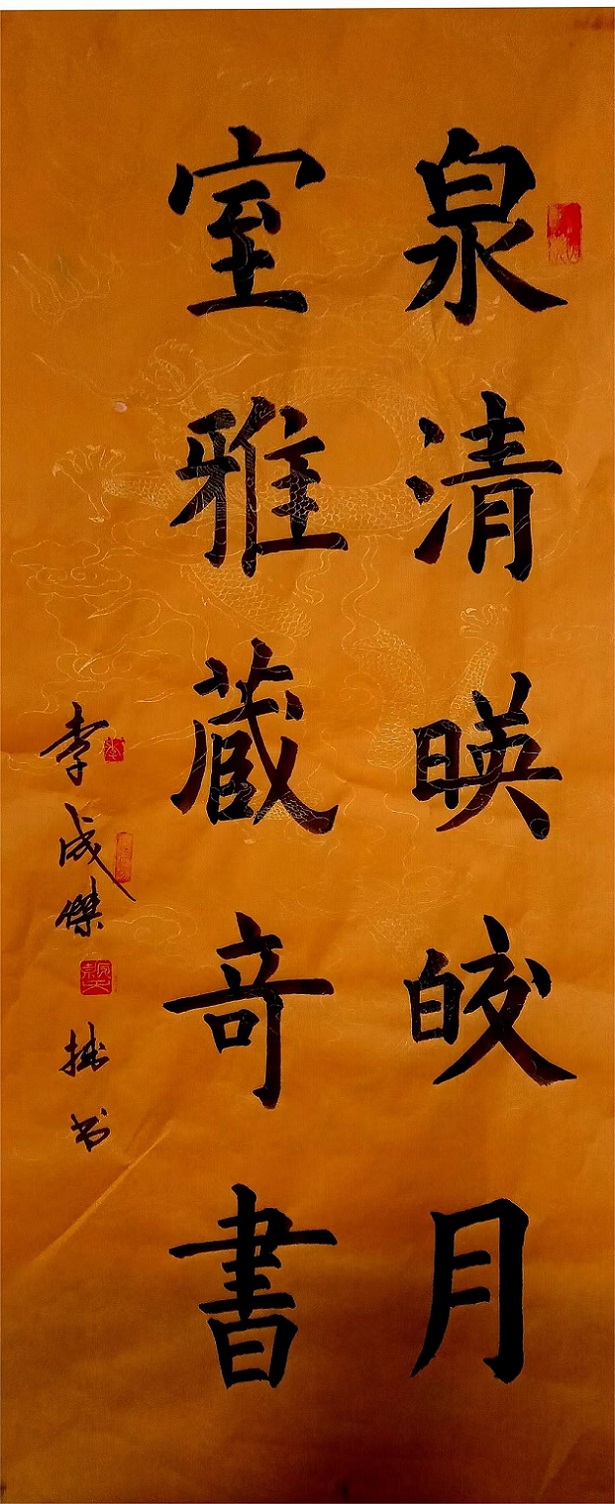 泉清暎皎月
室雅蔵竒書
李成傑拙书